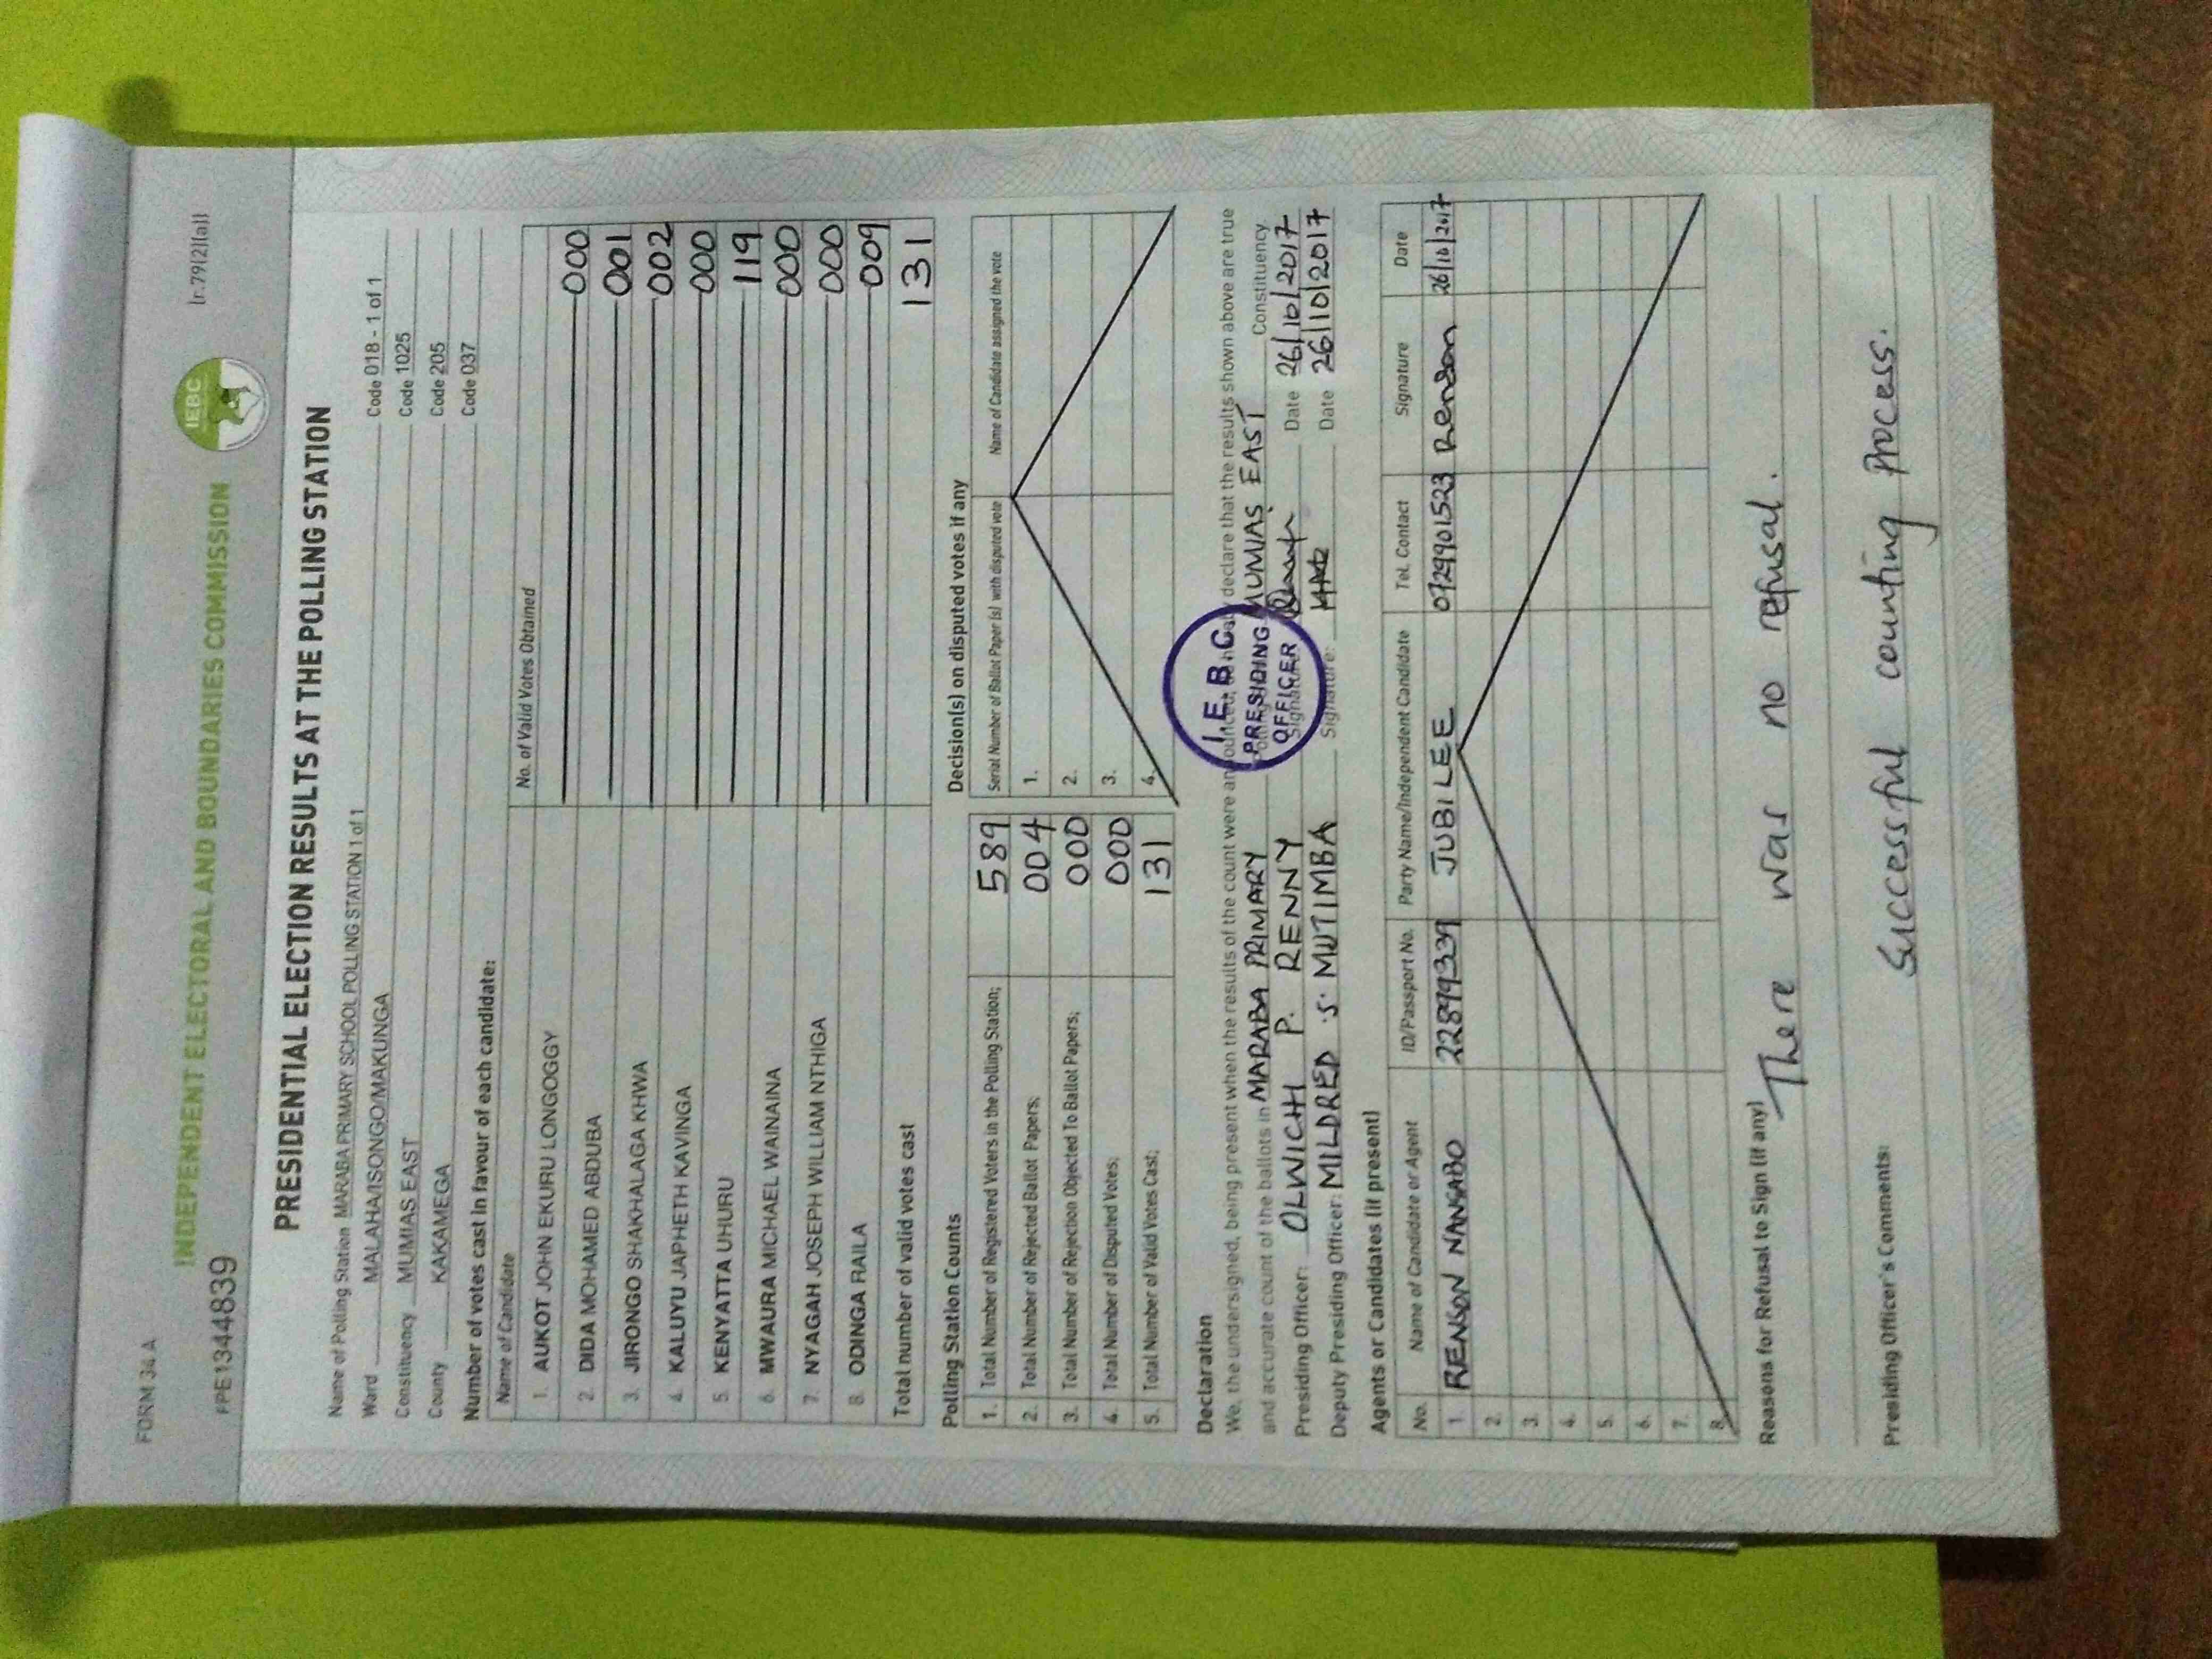 FORM 34 A
(r.79(2)(a))
INDEPENDENT ELECTORAL AND BOUNDARIES COMMISSION
IEBC
FPE1344839
PRESIDENTIAL ELECTION RESULTS AT THE POLLING STATION
Name of Polling Station MARABA PRIMARY SCHOOL POLLING STATION 1 of 1 Code 018 - 1 of 1
Ward MALAHA/ISONGO/MAKUNGA Code 1025
Constituency MUMIAS EAST Code 205
County KAKAMEGA Code 037
Number of votes cast in favour of each candidate:
Name of Candidate No. of Valid Votes Obtained
1. AUKOT JOHN EKURU LONGOGGY 000
2. DIDA MOHAMED ABDUBA 001
3. JIRONGO SHAKHALAGA KHWA 002
4. KALUYU JAPHETH KAVINGA 000
5. KENYATTA UHURU 119
6. MWAURA MICHAEL WAINAINA 000
7. NYAGAH JOSEPH WILLIAM NTHIGA 000
8. ODINGA RAILA 009
Total number of valid votes cast 131
Polling Station Counts
1. Total Number of Registered Voters in the Polling Station; 589
2. Total Number of Rejected Ballot Papers; 004
3. Total Number of Rejection Objected To Ballot Papers; 000
4. Total Number of Disputed Votes; 000
5. Total Number of Valid Votes Cast; 131
Decision(s) on disputed votes if any
Serial Number of Ballot Paper (s) with disputed vote Name of Candidate assigned the vote
1.
2.
3.
4.
Declaration
We, the undersigned, being present when the results of the count were announced, do hereby declare that the results shown above are true
and accurate count of the ballots in MARABA PRIMARY MUMIAS EAST Constituency
Presiding Officer: OLWICHI P. RENNY Signature: Date 26/10/2017
Deputy Presiding Officer: MILDRED S. MUTIMBA Signature: Date 26/10/2017
I E B C
PRESIDING
OFFICER
Agents or Candidates (if present)
No. Name of Candidate or Agent ID/Passport No. Party Name/Independent Candidate Tel. Contact Signature Date
1. RENSON NANGABO 22899339 JUBILEE 0729901523 Renson 26/10/2017
2.
3.
4.
5.
6.
7.
8.
Reasons for Refusal to Sign (if any)
There was no refusal.
Presiding Officer's Comments:
Successful counting process.